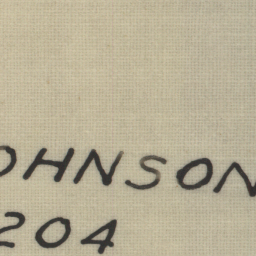 OHNSON
204